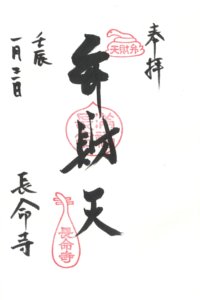 奉拝
弁財天
壬辰
一月三日
長命寺
弁財天
長命寺